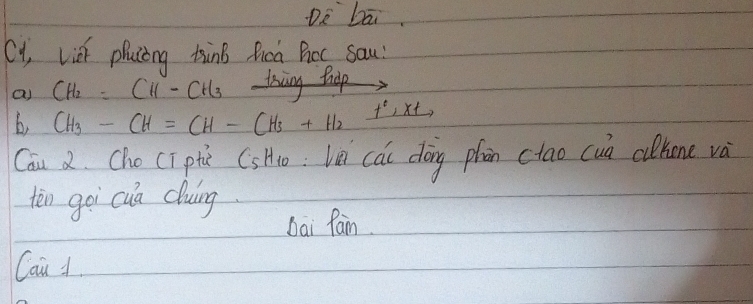 Đề bài.
C1, Viết phương trình hoá học sau:
a) CH2 = CH - CH3 trùng hợp →
b, CH3 - CH = CH - CH3 + H2 t°, xt →
Câu 2. Cho CT ptử C5H10. Viết các đồng phân ctạo của alkene và
tên gọi của chúng.
Bài làm.
Câu 1.